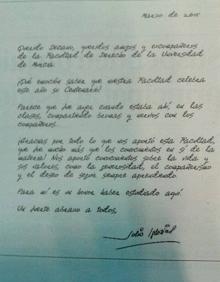 Marzo de 2015
Querido Decano, queridos amigos y excompañeros
de la Facultad de Derecho de la Universidad
de Murcia
¡Qué emoción saber que nuestra Facultad celebra
este año su Centenario!
Parece que fue ayer cuando estaba ahí, en las
clases, compartiendo y con los
compañeros.
¡Gracias por todo lo que nos aportó esta Facultad,
que fue mucho más que los conocimientos en sí de la
materia! Nos aportó conocimientos sobre la vida y
sus valores, como la generosidad, el compañerismo
y el deseo de seguir siempre aprendiendo.
Para mí es un honor haber estudiado aquí.
Un fuerte abrazo a todos,
Julio Iglesias